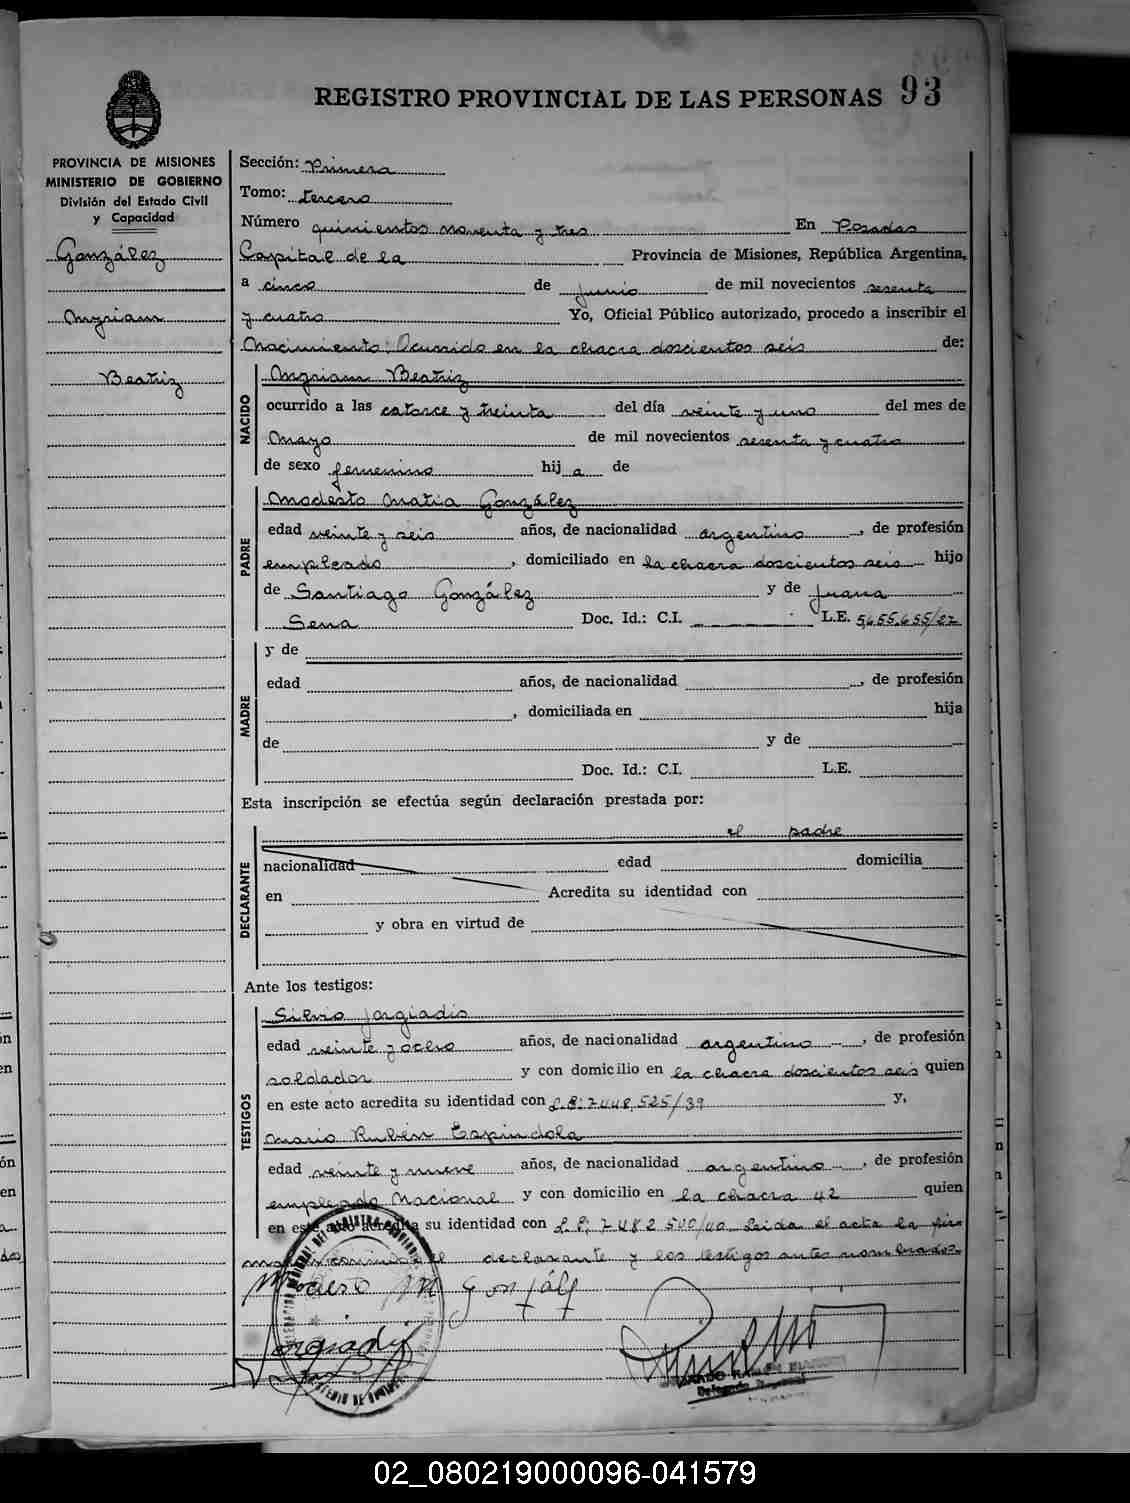 REGISTRO PROVINCIAL DE LAS PERSONAS 93
PROVINCIA DE MISIONES
MINISTERIO DE GOBIERNO
División del Estado Civil
y Capacidad
González
Myriam
Beatriz
Sección: Primera
Tomo: tercero
Número quinientos noventa y tres En Posadas
Capital de la Provincia de Misiones, República Argentina,
a cinco de junio de mil novecientos sesenta
y cuatro Yo, Oficial Público autorizado, procedo a inscribir el
Nacimiento: Ocurrido en la chacra doscientos seis de:
NACIDO
Myriam Beatriz
ocurrido a las catorce y treinta del día veinte y uno del mes de
Mayo de mil novecientos sesenta y cuatro
de sexo femenino hij a de
PADRE
Modesto Matia González
edad veinte y seis años, de nacionalidad argentino, de profesión
empleado, domiciliado en la chacra doscientos seis hijo
de Santiago González y de Juana
Sena Doc. Id.: C.I. L.E. 5.655.655/27
MADRE
y de
edad años, de nacionalidad, de profesión
, domiciliada en hija
de y de
Doc. Id.: C.I. L.E.
Esta inscripción se efectúa según declaración prestada por:
DECLARANTE
el padre
nacionalidad edad domicilia
en Acredita su identidad con
y obra en virtud de
Ante los testigos:
TESTIGOS
Silvio Jorgiadis
edad veinte y ocho años, de nacionalidad argentino, de profesión
soldador y con domicilio en la chacra doscientos seis quien
en este acto acredita su identidad con L.E: 7.448.525/39 y,
Mario Rubén Espindola
edad veinte y nueve años, de nacionalidad argentino, de profesión
empleado Nacional y con domicilio en la chacra 42 quien
en este acto acredita su identidad con L.E: 7.482.500/40 Leida el acta la fir
man conmigo el declarante y los testigos antes nombrados.
Modesto M González
Jorgiadis
02_080219000096-041579